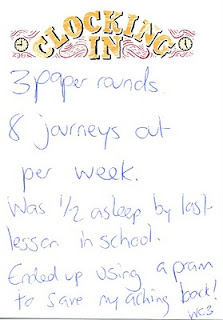 CLOCKING
IN
3 paper rounds.
8 journeys out
per week.
Was 1/2 asleep by last
lesson in school.
Ended up using a pram
to save my aching back!
WC3